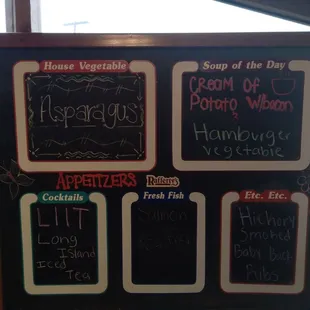 House Vegetable
Asparagus
Soup of the Day
Cream of
Potato w/Bacon
Hamburger
vegetable
APPETIZERS
Cocktails
LIIT
Long
Island
Iced
Tea
Fresh Fish
Salmon
Etc. Etc.
Hickory
Smoked
Baby Back
Ribs